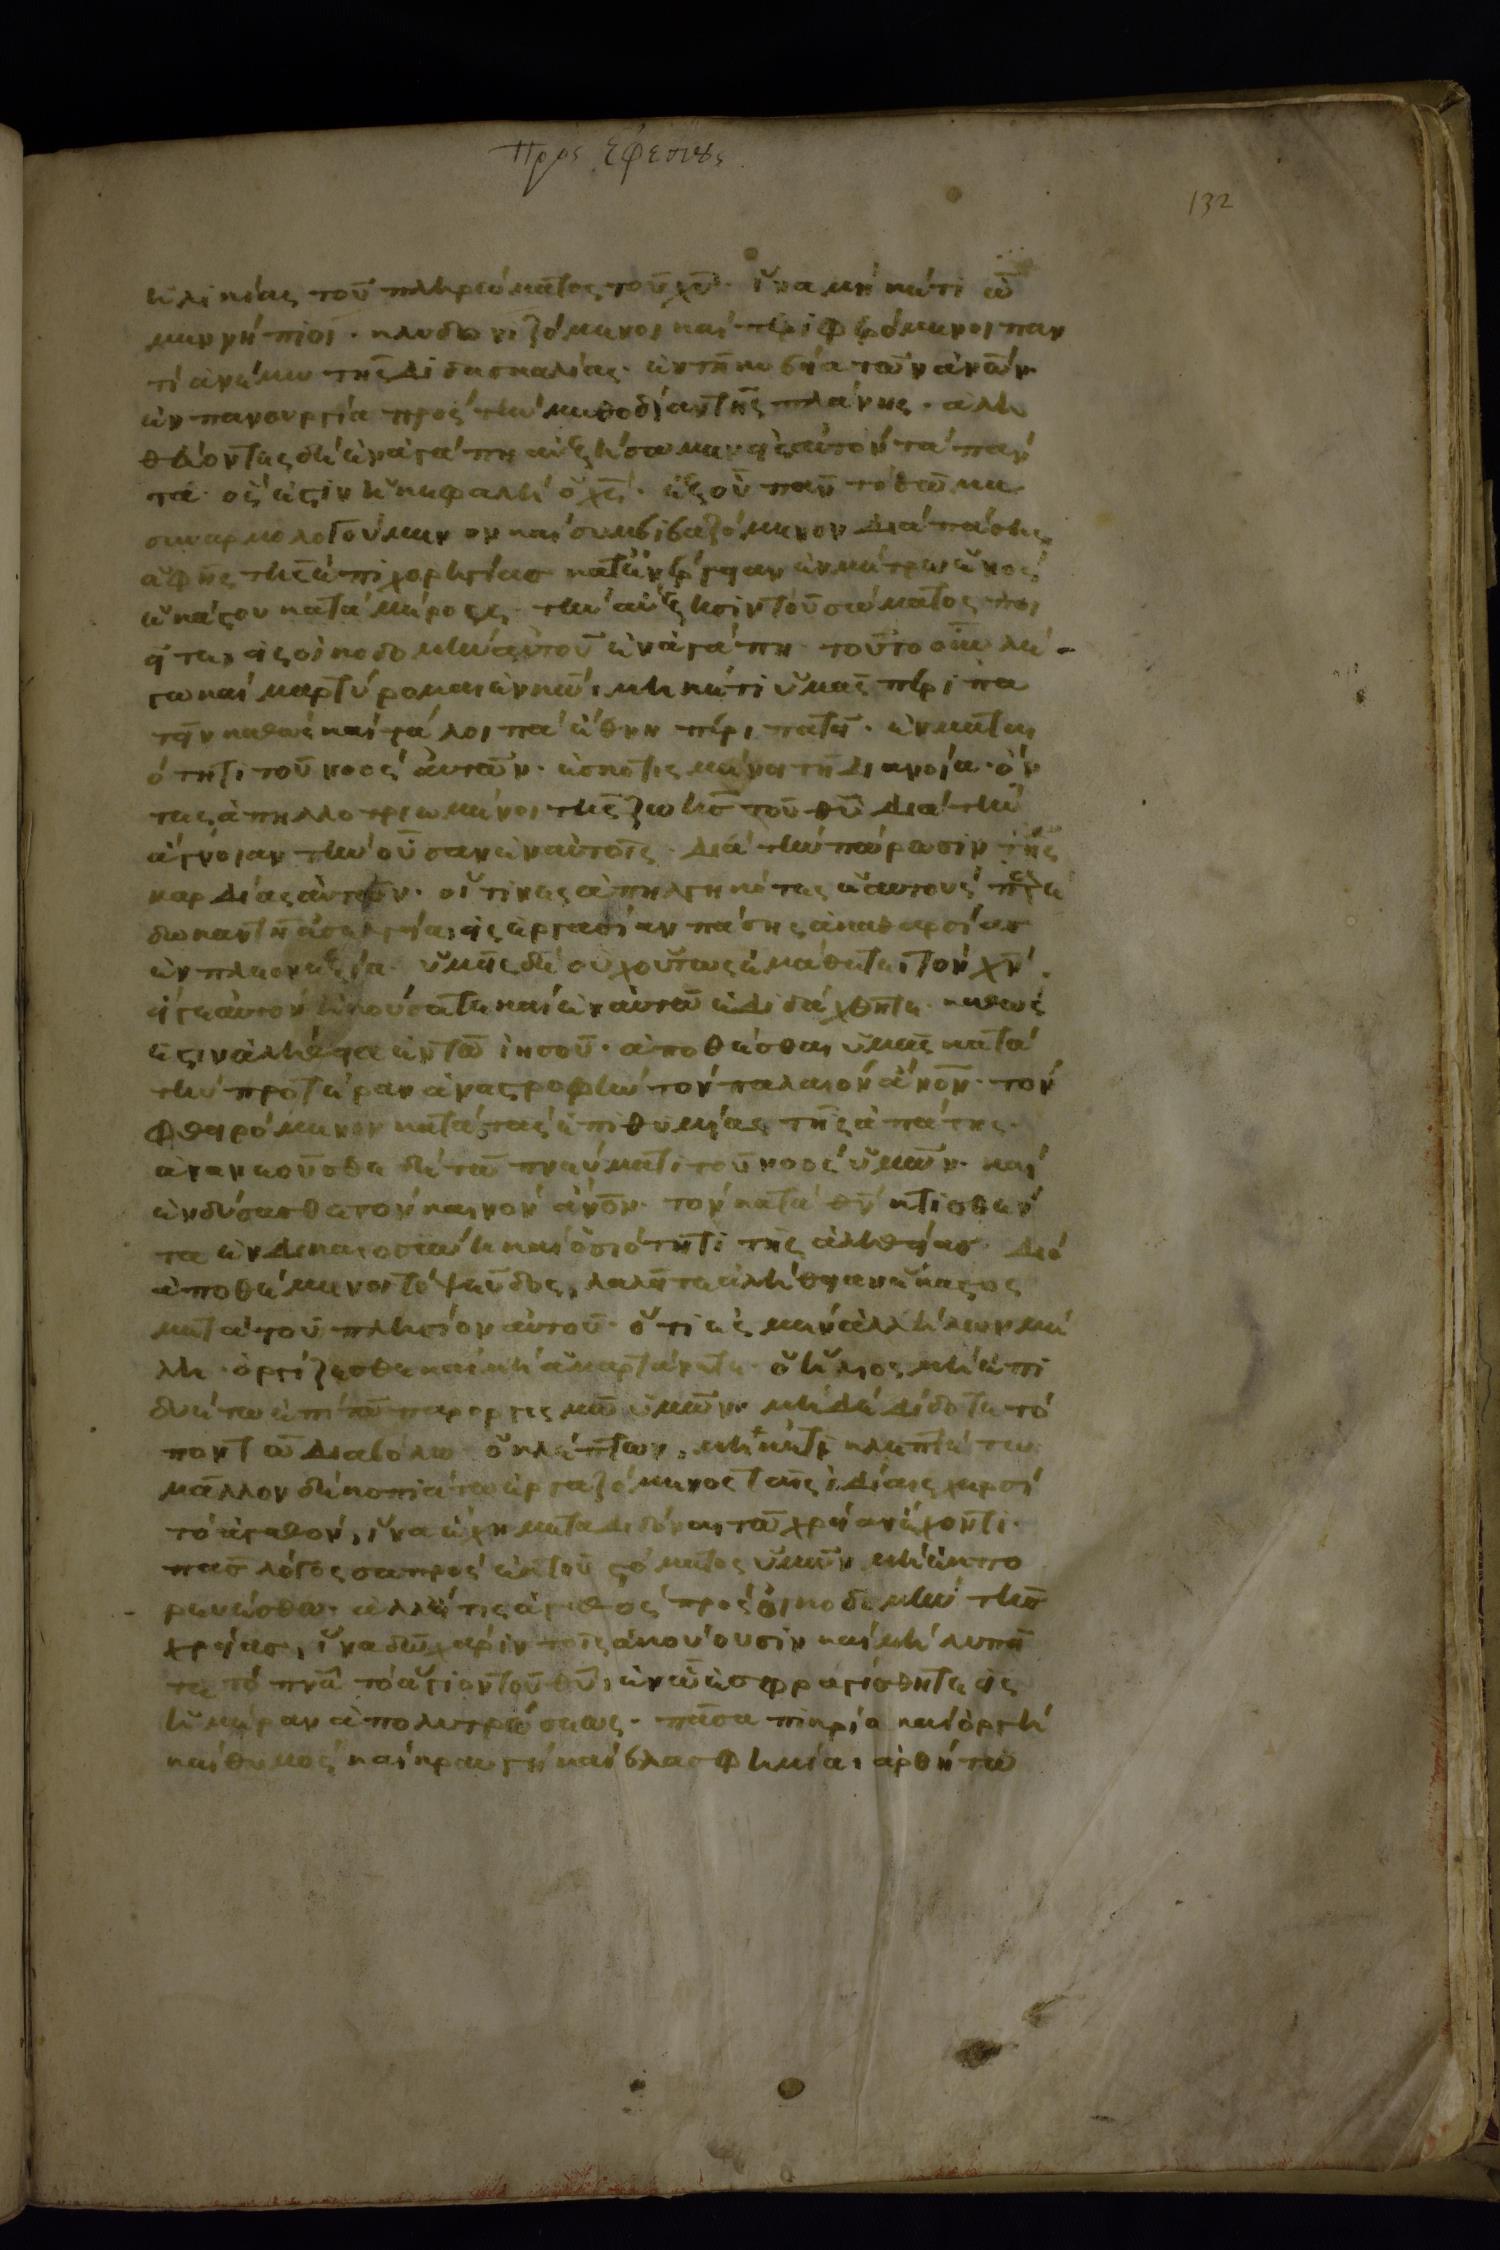 Προς Εφεσιους
132
ἡλικίας τοῦ πληρώματος τοῦ χ̅υ̅· ἵνα μηκέτι ὦ
μεν νήπιοι· κλυδωνιζόμενοι καὶ περιφερόμενοι παν
τὶ ἀνέμω τῆς διδασκαλίας· ἐν τῆ κυβεία τῶν ἀν̅ω̅ν·
ἐν πανουργία πρὸς τὴν μεθοδίαν τῆς πλάνης· ἀλη
θέοντες δὲ ἐν ἀγάπη αὐξήσωμεν εἰς αὐτὸν τὰ πάν
τα· ὅς ἐστιν ἡ κεφαλὴ ὁ χ̅ς̅· ἐξ οὗ πᾶν τὸ σῶμα
συναρμολογούμενον καὶ συμβιβαζόμενον διὰ πάσης
ἀφῆς τῆς ἐπιχορηγίας κατ᾽ ἐνέργειαν ἐν μέτρω ἑνὸς
ἑκάστου κατὰ μέρος, τὴν αὔξησιν τοῦ σώματος ποι
εῖται εἰς οἰκοδομὴν αὐτοῦ ἐν ἀγάπη· τοῦτο οὖν λέ
γω καὶ μαρτύρομαι ἐν κ̅ω̅, μηκέτι ὑμᾶς περιπα
τεῖν καθὼς καὶ τὰ λοιπὰ ἔθνη περιπατεῖ· ἐν μαται
ότητι τοῦ νοὸς αὐτῶν· ἐσκοτισμένοι τῆ διανοία· ὄν
τες ἀπηλλοτριωμένοι τῆς ζωῆς τοῦ θ̅υ̅ διὰ τὴν
ἄγνοιαν τὴν οὖσαν ἐν αὐτοῖς· διὰ τὴν πώρωσιν τῆς
καρδίας αὐτῶν· οἵτινες ἀπηλγηκότες ἑαυτοὺς παρέ
δωκαν τῆ ἀσελγεία, εἰς ἐργασίαν πάσης ἀκαθαρσίας
ἐν πλεονεξία· ὑμεῖς δὲ οὐχ οὕτως ἐμάθετε τὸν χ̅ν̅·
εἴγε αὐτὸν ἠκούσατε καὶ ἐν αὐτῶ ἐδιδάχθητε· καθώς
ἐστιν ἀλήθεια ἐν τῶ ἰησοῦ· ἀποθέσθαι ὑμᾶς κατὰ
τὴν προτέραν ἀναστροφὴν τὸν παλαιὸν ἄν̅ο̅ν· τὸν
φθειρόμενον κατὰ τὰς ἐπιθυμίας τῆς ἀπάτης·
ἀνανεοῦσθε δὲ τῶ πνεύματι τοῦ νοὸς ὑμῶν· καὶ
ἐνδύσασθε τὸν καινὸν ἄν̅ο̅ν· τὸν κατὰ θ̅ν̅ κτισθέν
τα ἐν δικαιοσύνη καὶ ὁσιότητι τῆς ἀληθείας· διὸ
ἀποθέμενοι τὸ ψεῦδος, λαλεῖτε ἀλήθειαν ἕκαστος
μετὰ τοῦ πλησίον αὐτοῦ· ὅτι ἐσμὲν ἀλλήλων μέ
λη· ὀργίζεσθε καὶ μὴ ἁμαρτάνετε· ὁ ἥλιος μὴ ἐπι
δυέτω ἐπὶ τῶ παροργισμῶ ὑμῶν· μηδὲ δίδοτε τό
πον τῶ διαβόλω· ὁ κλέπτων, μηκέτι κλεπτέτω·
μᾶλλον δὲ κοπιάτω ἐργαζόμενος ταῖς ἰδίαις χερσὶ
τὸ ἀγαθόν, ἵνα ἔχη μεταδιδόναι τῶ χρείαν ἔχοντι·
πᾶς λόγος σαπρὸς ἐκ τοῦ στόματος ὑμῶν μὴ ἐκπο
ρευέσθω· ἀλλ᾽ εἴ τις ἀγαθὸς πρὸς οἰκοδομὴν τῆς
χρείας, ἵνα δῶ χάριν τοῖς ἀκούουσιν καὶ μὴ λυπεῖ
τε τὸ π̅ν̅α̅ τὸ ἅγιον τοῦ θ̅υ̅, ἐν ὧ ἐσφραγίσθητε εἰς
ἡμέραν ἀπολυτρώσεως· πᾶσα πικρία καὶ ὀργὴ
καὶ θυμὸς καὶ κραυγὴ καὶ βλασφημία, ἀρθήτω